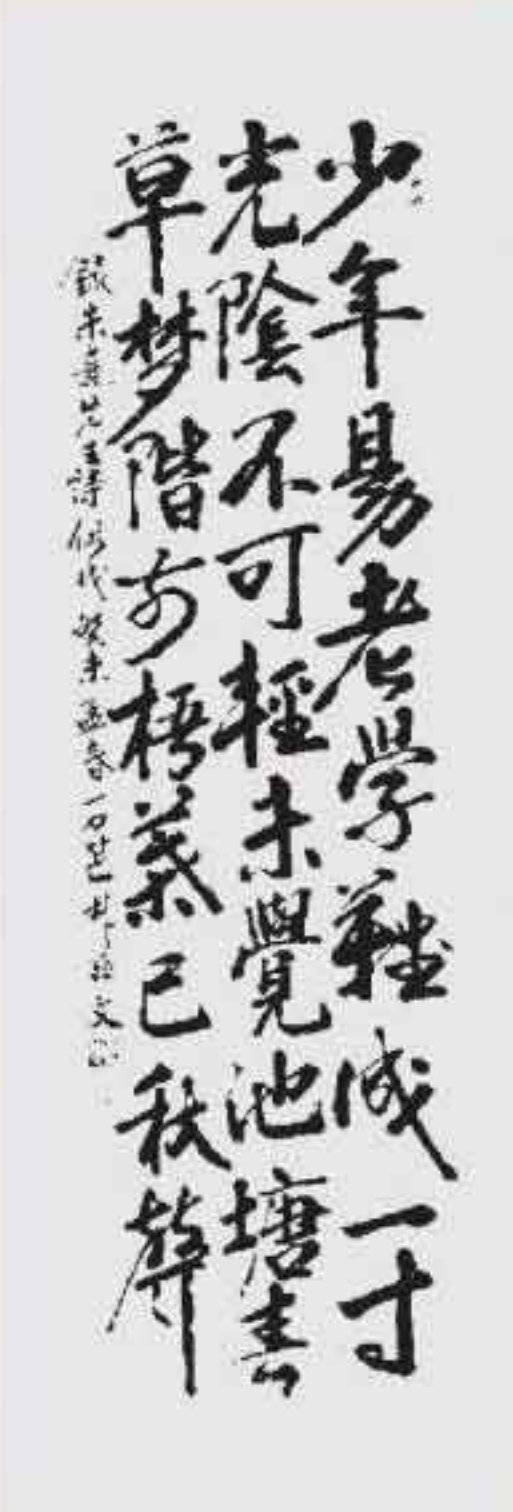 少年易老學難成一寸
光陰不可輕未覺池塘春
草夢階前梧葉已秋聲
錄朱熹先生詩 癸未孟春